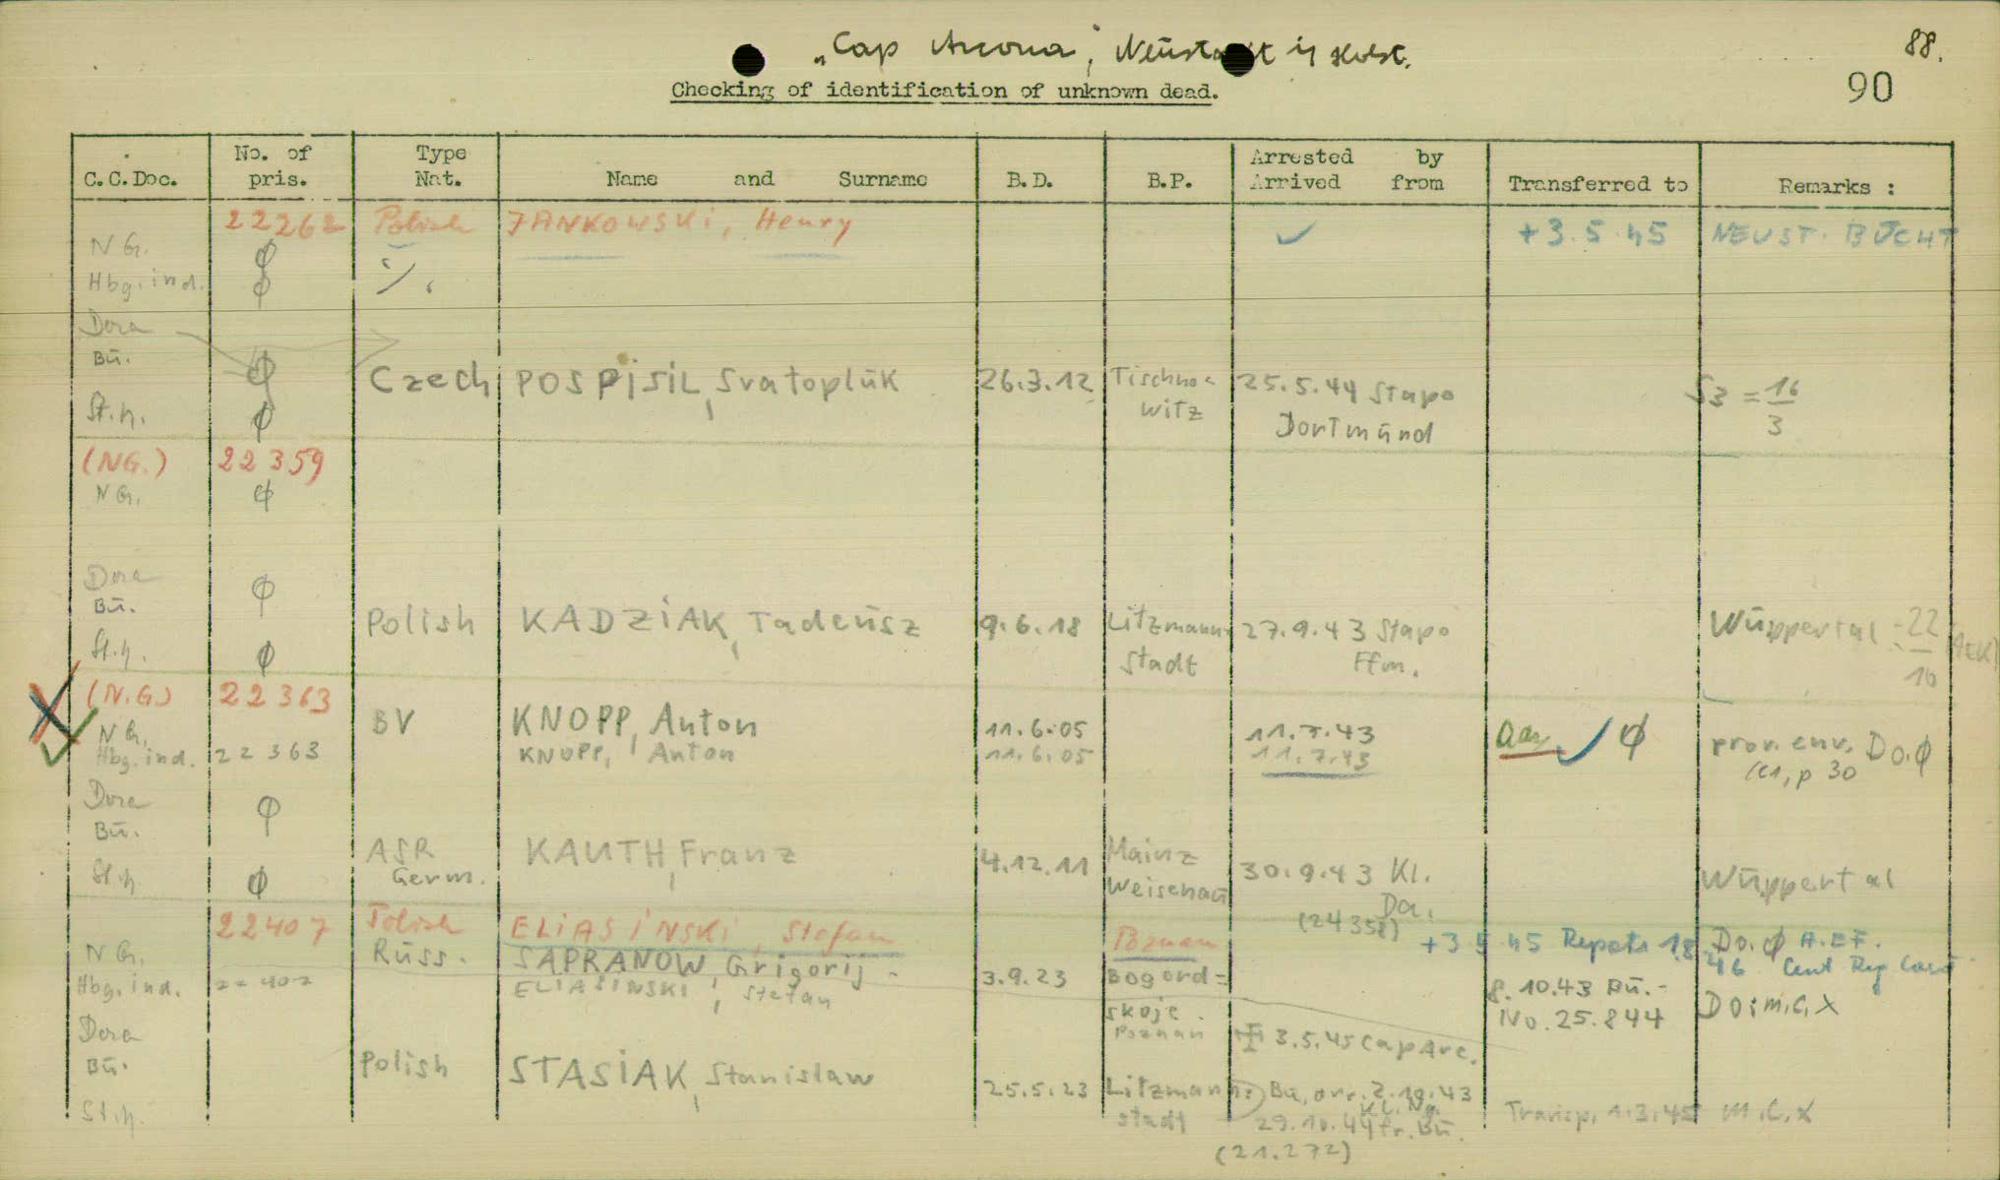 „Cap Arcona", Neustadt in Holst.
88.
90
Checking of identification of unknown dead.
C.C.Doc. No. of pris. Type Nat. Name and Surname B.D. B.P. Arrested by Arrived from Transferred to Remarks :
22262 Polish JANKOWSKI, Henry ✓ +3.5.45 NEUST. BUCHT
NG. ϕ
Hbg. ind. ϕ ·/.
Dora
Bü. ϕ Czech POSPiSiL, Svatopluk 26.3.12 Tischno= 25.5.44 Stapo 53 = 16
St.h. ϕ witz Dortmund 3
(NG.) 22359
NG. ϕ
Dora ϕ
Bü. Polish KADZiAK, Tadeusz 9.6.18 Litzmann- 27.9.43 Stapo Wuppertal 22
St.h. ϕ stadt Ffm. 16
(N.G.) 22363
NG. BV KNOPP, Anton 11.6.05 11.7.43 ✓ ϕ prov. env. Do. ϕ
Hbg. ind. 22363 KNOPP, Anton 11.6.05 11.7.43 p 30
Dora ϕ
Bü. ASR KAUTH, Franz 4.12.11 Mainz 30.9.43 Kl.
St.h. ϕ Germ. Weisenau Da. Wuppertal
(24351)
22407 Polish ELiASiNSKi, Stefan Poznan +3 5 45 Do. ϕ A.E.F.
NG. Russ. SAPRANOW, Grigorij - 3.9.23 Bogord= 8.10.43 Bü.- 46 Cent Reg Card
Hbg. ind. 22407 ELIASINSKI, Stefan skoje. No. 25.844 Do: m.C. X
Dora Poznan ✠ 3.5.45 Cap Arc.
Bü. Polish STASiAK, Stanislaw 25.5.23 Litzmann= Bu, 2.10.43
St.h. stadt 29.10.44 fr. Bu. Transp. 1.3.45 m.C. X
(21.272)